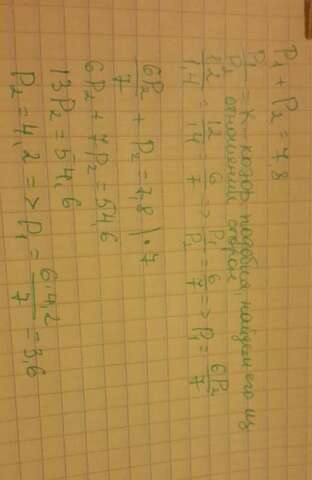 P₁ + P₂ = 7,8
P₁/P₂ = k коэф. подобия, найдем его из отношении сторон
1,2/1,4 = 12/14 = 6/7 => P₁/P₂ = 6/7 => P₁ = 6P₂/7
6P₂/7 + P₂ = 7,8 | · 7
6P₂ + 7P₂ = 54,6
13P₂ = 54,6
P₂ = 4,2 => P₁ = 6·4,2/7 = 3,6